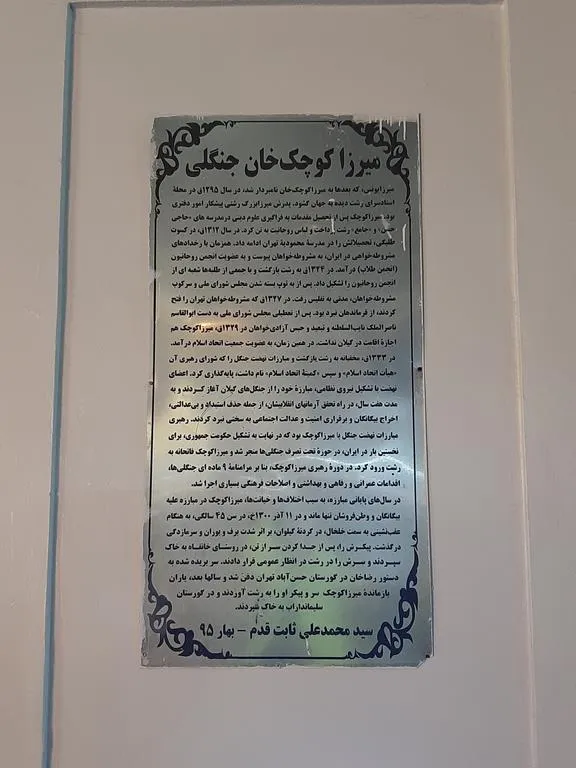 میرزا کوچک‌خان جنگلی
میرزایونس، که بعدها به میرزاکوچک‌خان نامبردار شد، در سال ۱۲۹۵ق در محلهٔ
استادسرای رشت دیده به جهان گشود. پدرش میرزابزرگ رشتی پیشکار امور دفتری
بود. میرزاکوچک پس از تحصیل مقدمات به فراگیری علوم دینی در مدرسه های «حاجی
حسن» و «جامع» رشت پرداخت و لباس روحانیت به تن کرد. در سال ۱۳۱۲ق، در کسوت
طلبگی، تحصیلاتش را در مدرسهٔ محمودیهٔ تهران ادامه داد. همزمان با رخدادهای
مشروطه‌خواهی در ایران، به مشروطه‌خواهان پیوست و به عضویت انجمن روحانیون
(انجمن طلاب) درآمد. در ۱۳۲۴ق به رشت بازگشت و با جمعی از طلبه‌ها شعبه ای از
انجمن روحانیون را تشکیل داد. پس از به توپ بسته شدن مجلس شورای ملی و سرکوب
مشروطه‌خواهان، مدتی به تفلیس رفت. در ۱۳۲۷ق که مشروطه‌خواهان تهران را فتح
کردند، از فرماندهان نبرد بود. پس از تعطیلی مجلس شورای ملی به دست ابوالقاسم
ناصرالملک نایب‌السلطنه و تبعید و حبس آزادی‌خواهان در ۱۳۲۹ق، میرزاکوچک هم
اجازهٔ اقامت در گیلان نداشت. در همین زمان، به عضویت جمعیت اتحاد اسلام درآمد.
در ۱۳۳۳ق، مخفیانه به رشت بازگشت و مبارزات نهضت جنگل را که شورای رهبری آن
«هیأت اتحاد اسلام» و سپس «کمیتهٔ اتحاد اسلام» نام داشت، پایه‌گذاری کرد. اعضای
نهضت با تشکیل نیروی نظامی، مبارزهٔ خود را از جنگل‌های گیلان آغاز کردند و به
مدت هفت سال، در راه تحقق آرمانهای انقلابیشان، از جمله حذف استبداد و بی‌عدالتی،
اخراج بیگانگان و برقراری امنیت و عدالت اجتماعی به سختی نبرد کردند. رهبری
مبارزات نهضت جنگل با میرزاکوچک بود که در نهایت به تشکیل حکومت جمهوری، برای
نخستین بار در ایران، در حوزهٔ تحت تصرف جنگلی‌ها منجر شد و میرزاکوچک فاتحانه به
رشت ورود کرد. در دورهٔ رهبری میرزاکوچک، بنا بر مرامنامهٔ ۹ ماده ای جنگلی‌ها،
اقدامات عمرانی و رفاهی و بهداشتی و اصلاحات فرهنگی بسیاری اجرا شد.
در سال‌های پایانی مبارزه، به سبب اختلاف‌ها و خیانت‌ها، میرزاکوچک در مبارزه علیه
بیگانگان و وطن‌فروشان تنها ماند و در ۱۱ آذر ۱۳۰۰خ، در سن ۴۵ سالگی، به هنگام
عقب‌نشینی به سمت خلخال، در گردنهٔ گیلوان، بر اثر شدت برف و بوران و سرمازدگی
درگذشت. پیکرش را، پس از جدا کردن سر از تن، در روستای خانقاه به خاک
سپردند و سرش را در رشت در انظار عمومی قرار دادند. سر بریده شده به
دستور رضاخان در گورستان حسن‌آباد تهران دفن شد و سالها بعد، یاران
بازماندهٔ میرزاکوچک سر و پیکر او را به رشت آوردند و در گورستان
سلیمانداراب به خاک سپردند.
سید محمدعلی ثابت قدم – بهار ۹۵